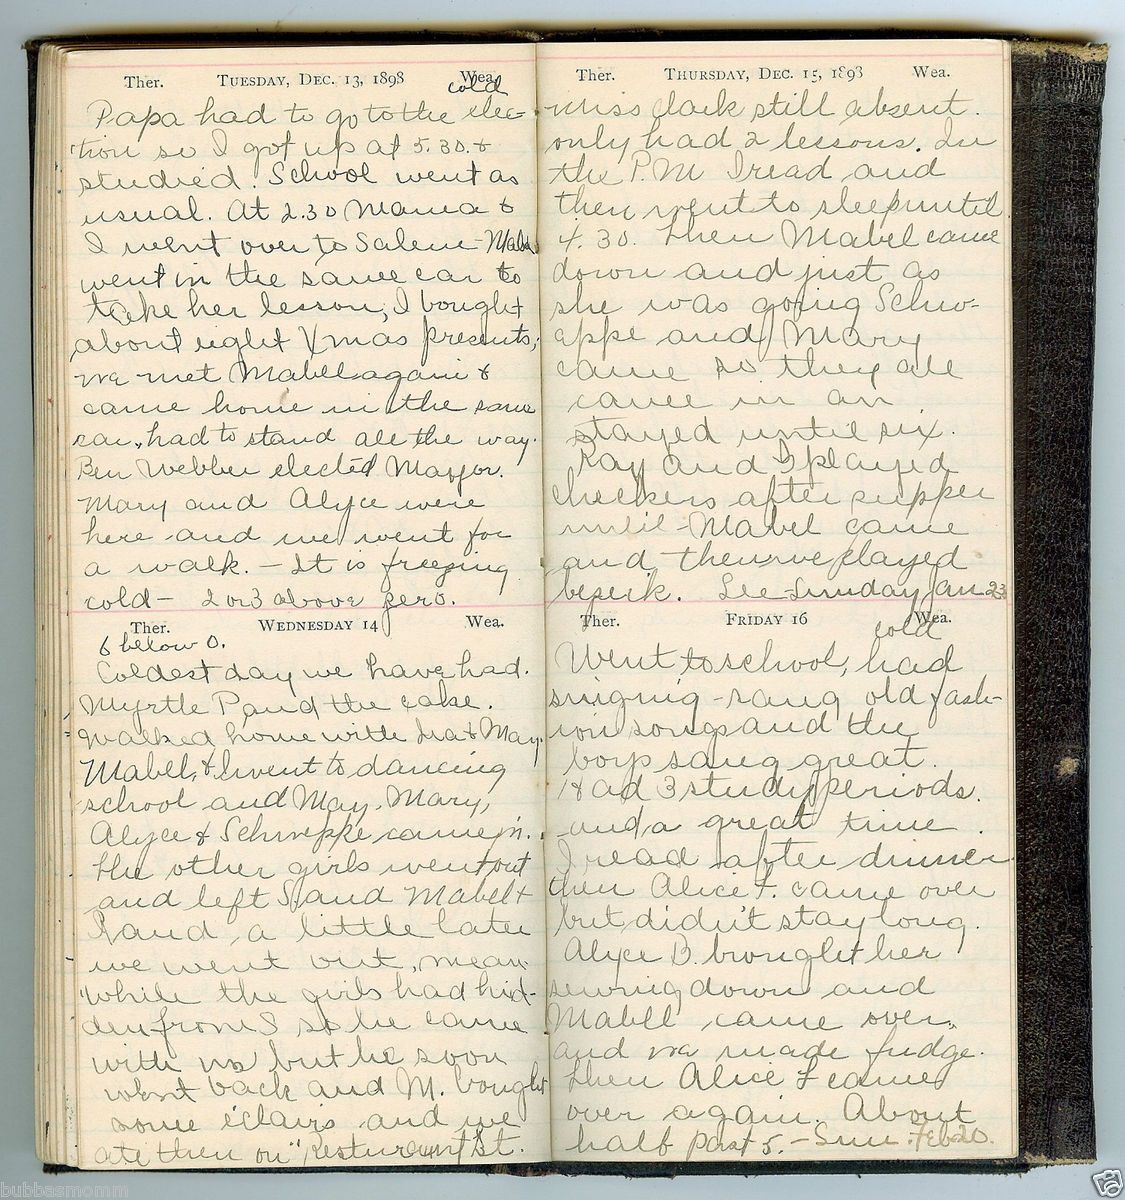 Ther. TUESDAY, DEC. 13, 1898 Wea.
cold
Papa had to go to the elec-
tion so I got up at 5.30. &
studied. School went as
usual. At 2.30 Mama &
I went over to Salem - Mabel
went in the same car to
take her lesson, I bought
about eight Xmas presents,
we met Mabel again &
came home in the same
car, had to stand all the way.
Ben Webber elected Mayor.
Mary and Alyce were
here and we went for
a walk. - It is freezing
cold - 2 or 3 above zero.
Ther. WEDNESDAY 14 Wea.
6 below 0.
Coldest day we have had.
Myrtle P. and the cake.
Walked home with & May.
Mabel, & I went to dancing
school and May, Mary,
Alyce & Schweppe came in.
the other girls went out
and left S. and Mabel &
R and, a little later
we went out, mean-
while the girls had hid-
den from S so he came
with us but he soon
went back and M. bought
some éclairs and we
ate them on " St.
Ther. THURSDAY, DEC. 15, 1898 Wea.
Miss Clark still absent.
only had 2 lessons. In
the P.M I read and
then went to sleep until
4.30. then Mabel came
down and just as
she was going Schw-
eppe and Mary
came so they all
came in an
stayed until six.
Ray and I played
checkers after supper
until Mabel came
and then we played
bezeik. See Sunday Jan 23
Ther. FRIDAY 16 Wea.
cold
Went to school, had
singing - sang old fash-
ion songs and the
boys sang great.
Had 3 study periods.
and a great time.
I read after dinner
then Alice F. came over
but didn't stay long.
Alyce B. brought her
sewing down and
Mabel came over,
and we made fudge.
then Alice F came
over again. About
half past 5. - Sun. Feb 20.
bubbasmomm